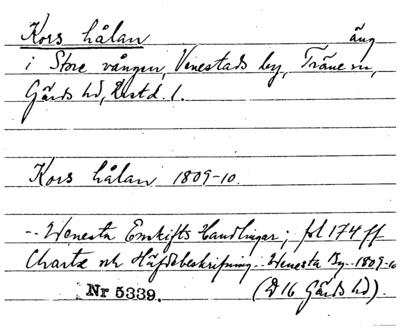 Kors hålan äng
i Store vången, Venestads by, Träne sn,
Gärds hd, Krstd. l.
Kors hålan 1809-10.
-- Wenesta Enskifts Handlingar; fol 174 ff
Charta och Häfdebeskrifning.. Wenesta By. 1809-10
Nr 5339. (D 16 Gärds hd).